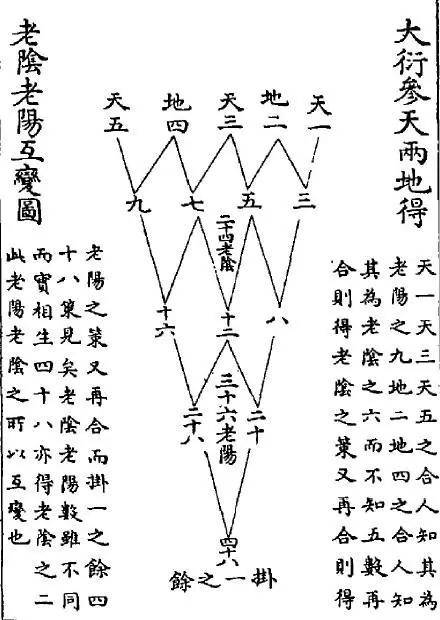 大衍參天兩地得
老陰老陽互變圖
天一
地二
天三
地四
天五
三
五
七
九
二十四老陰
八
十二
十六
三十六老陽
二十
二十八
四十八
掛一之餘
天一天三天五之合人知其為
老陽之九地二地四之合人知
其為老陰之六而不知五數再
合則得老陰之策又再合則得
老陽之策又再合而掛一之餘四
十八策見矣老陰老陽數雖不同
而實相生四十八亦得老陰之二
此老陽老陰之所以互變也